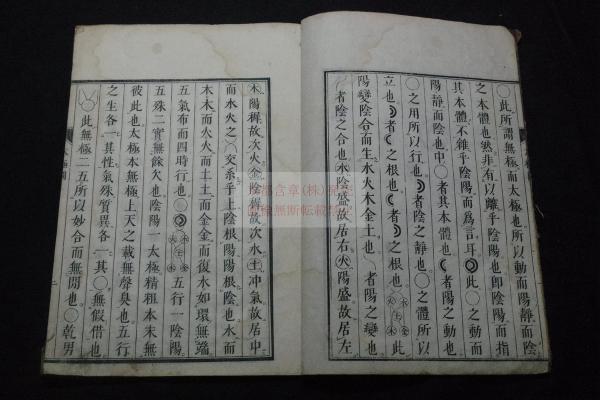 ○此所謂無極而太極也所以動而陽靜而陰
之本體也然非有以離乎陰陽也卽陰陽而指
其本體不雜乎陰陽而爲言耳○此○之動而
陽靜而陰也中○者其本體也者陽之動也
○之用所以行也者陰之靜也○之體所以
立也者之根也者之根也此
陽變陰合而生水火木金土也者陽之變也
者陰之合也水陰盛故居右火陽盛故居左
木陽穉故次火金陰穉故次水土冲氣故居中
而水火之交系乎上陰根陽陽根陰也水而
木木而火火而土土而金金而復水如環無端
五氣布而四時行也○五行一陰陽
五殊二實無餘欠也陰陽一太極精粗本末無
彼此也太極本無極上天之載無聲臭也五行
之生各一其性氣殊質異各一其○無假借也
此無極二五所以妙合而無閒也○乾男